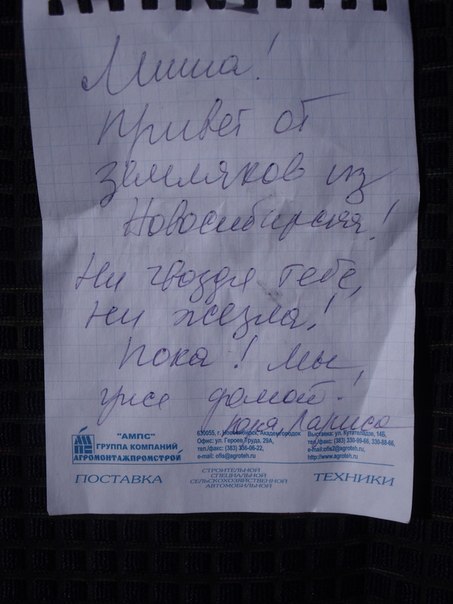 Миша!
Привет от
земляков из
Новосибирска!
Ни гвоздя тебе,
ни жезла!
Пока! Мы
уже домой!
Лариса
"АМПС"
ГРУППА КОМПАНИЙ
АГРОМОНТАЖПРОМСТРОЙ
630055, г. Новосибирск, Академгородок
Офис: ул. Героев Труда, 29А,
тел./факс: (383) 306-66-22,
e-mail: ofis@agroteh.ru
Выставка: ул. Кутателадзе, 16Б,
тел./факс: (383) 330-99-66, 330-88-66,
e-mail: ofis2@agroteh.ru
http://www.agroteh.ru
ПОСТАВКА
СТРОИТЕЛЬНОЙ
СПЕЦИАЛЬНОЙ
СЕЛЬСКОХОЗЯЙСТВЕННОЙ
АВТОМОБИЛЬНОЙ
ТЕХНИКИ